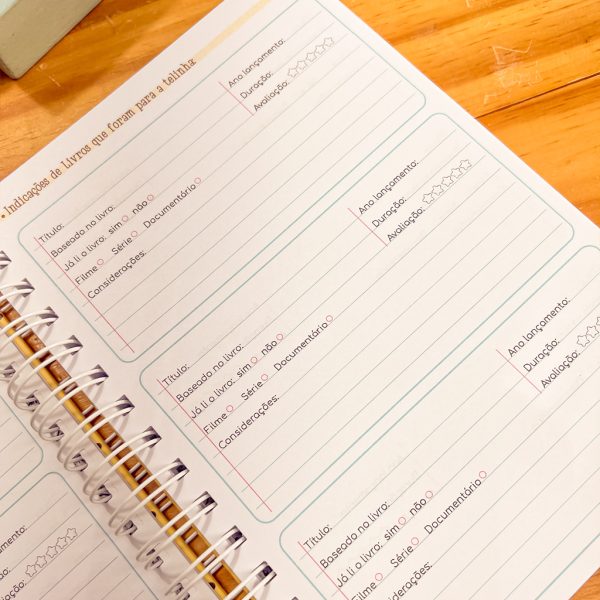 • Indicações de Livros que foram para a telinha
Título:
Ano lançamento:
Baseado no livro:
Duração:
Já li o livro: sim não
Avaliação:
Filme Série Documentário
Considerações:
Título:
Ano lançamento:
Baseado no livro:
Duração:
Já li o livro: sim não
Avaliação:
Filme Série Documentário
Considerações:
Título:
Ano lançamento:
Baseado no livro:
Duração:
Já li o livro: sim não
Avaliação:
Filme Série Documentário
Considerações:
lançamento:
Duração:
Avaliação: